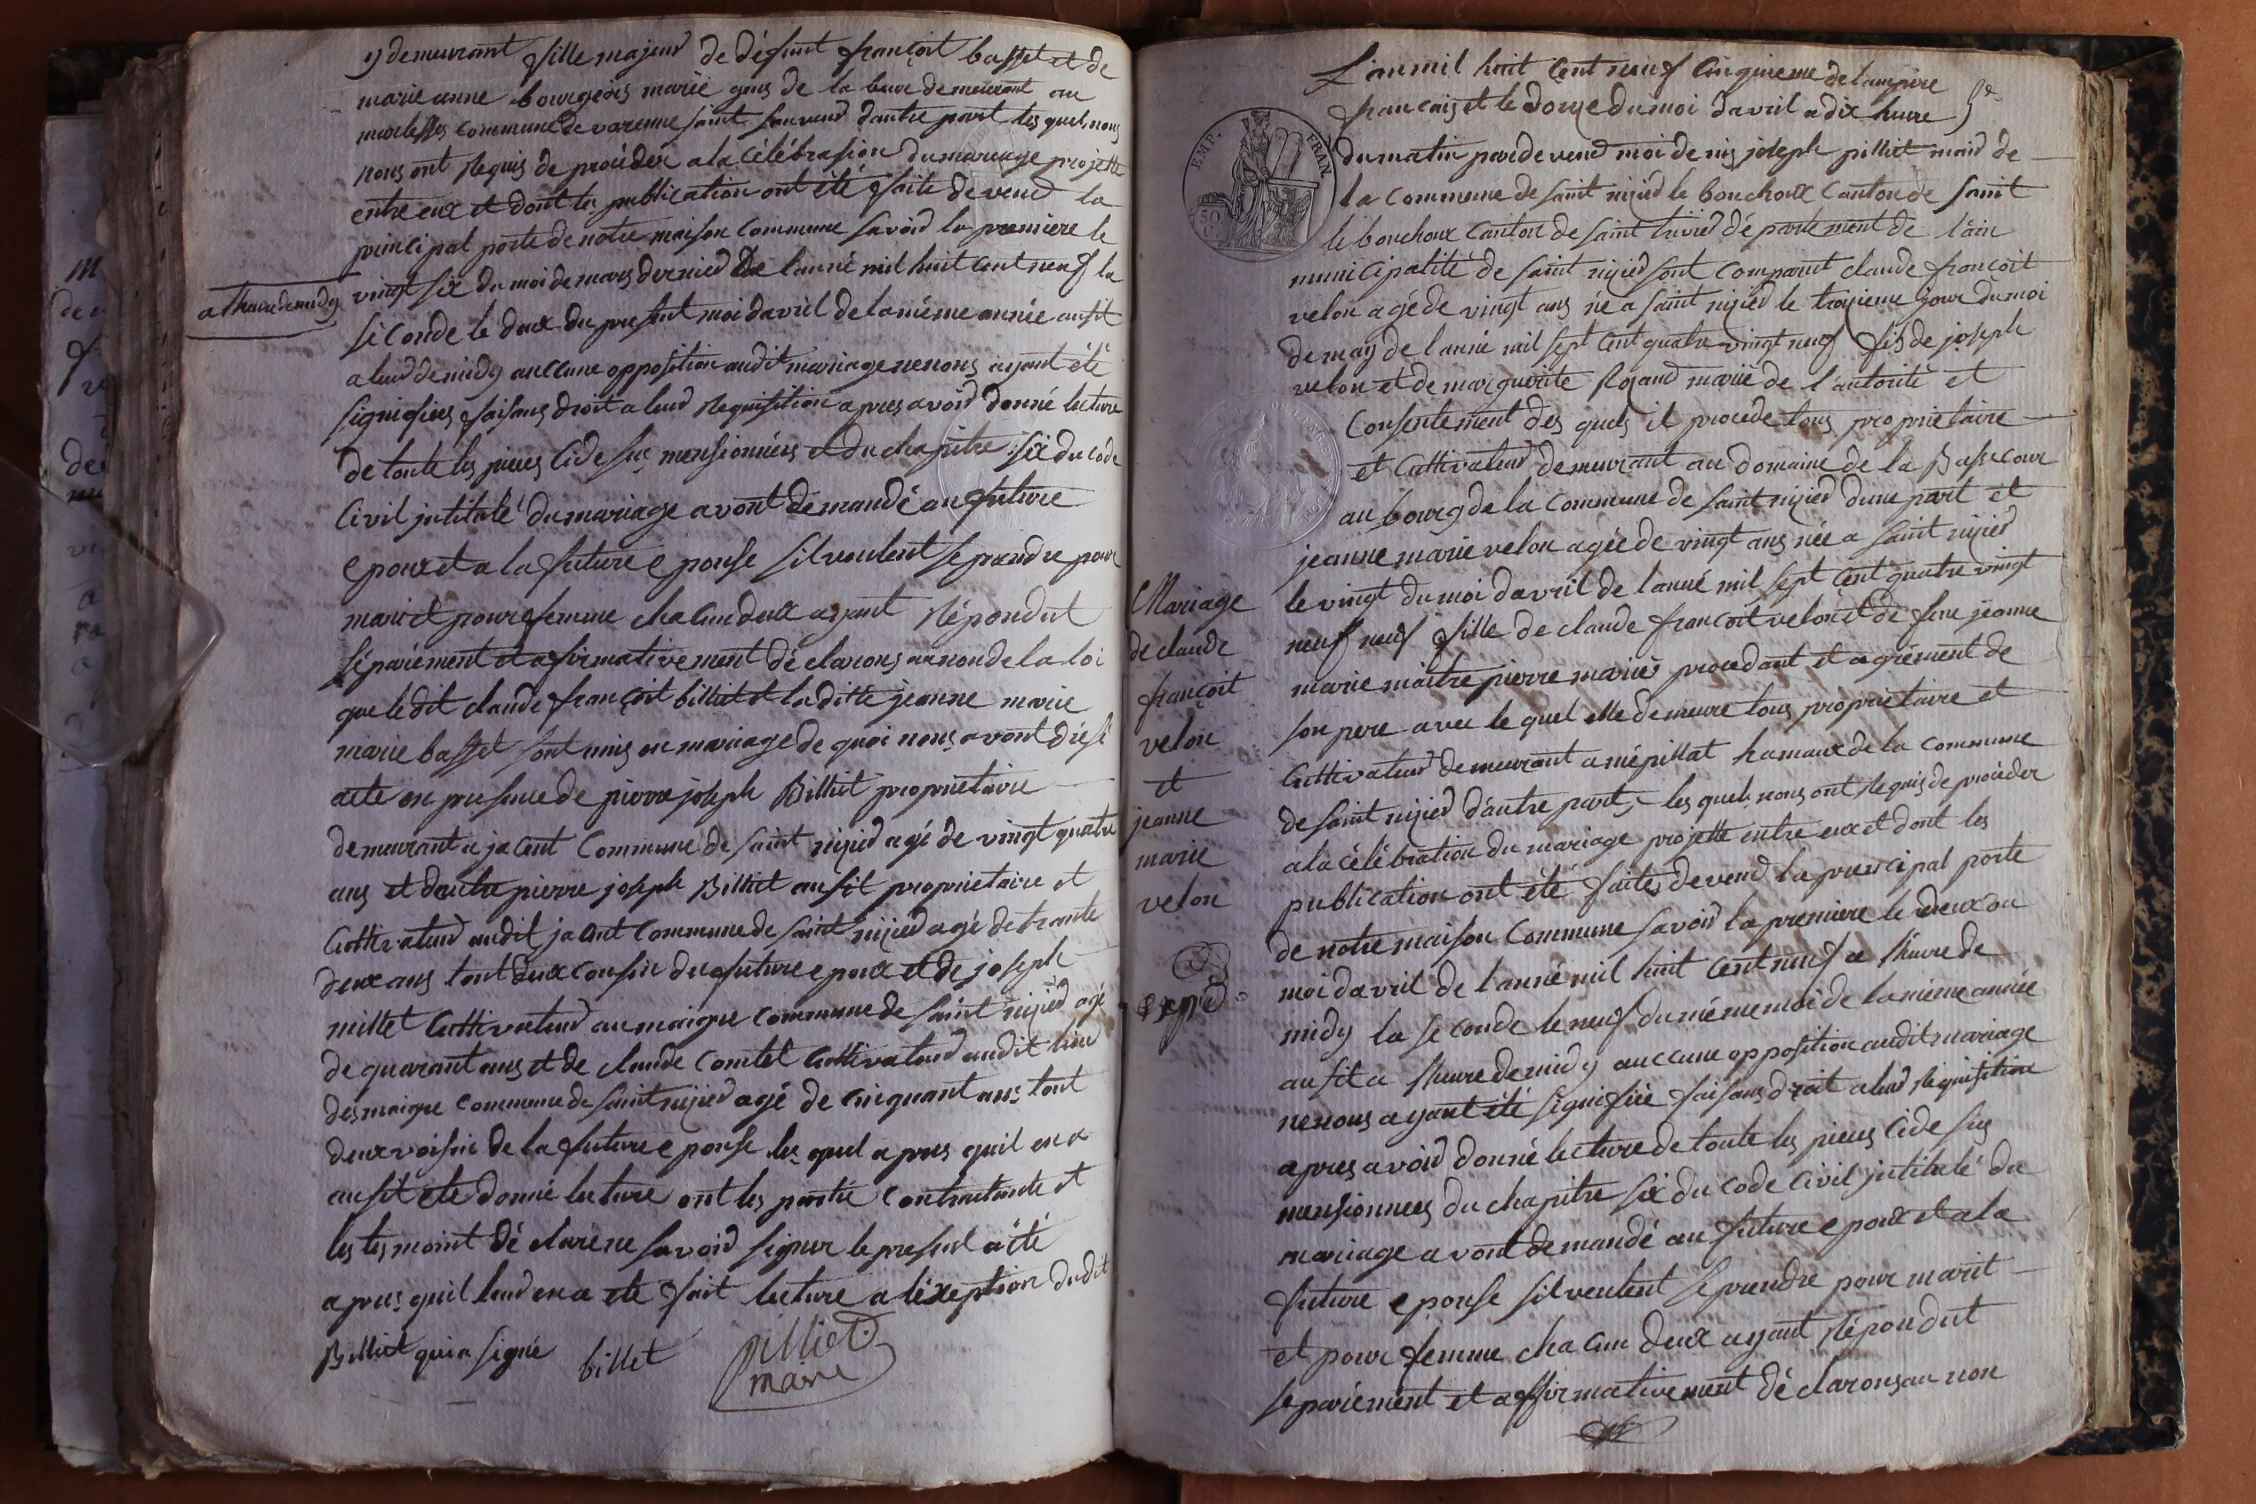 y demeurant fille majeur de défunt françoit basset et de
marie anne bourgeois marié gens de la bure demeurant au
commune de varenne saint sauveur dautre part les quels nous
nous ont Requis de procéder a la célébrasion du mariage projetté
entre eux et dont les publication ont été faite devend la
principal porte de notre maison commune savoid la premiere le
vingt six du moi de mars dernied de lanné mil huit cent neuf la
a lheure de midy
seconde le deux du present moi davril de la même année ausit
a leur de midy auccune opposition audit mariage ne nous ayant été
signifiées faisans droit a leud Requisition apres avoid donné lecture
de toute les pieces cide sus mensionnées et du chapitre six du code
Civil jntitulé du mariage avont demandé au future
epoux et a la future epouse sil veulent se prendre pour
marit et pour femme chacun deux ayant Répondut
séparement et afirmativement déclarons au non de la loi
que ledit claude françoit billiet et laditte jeanne marie
marie basset sont unis en mariage de quoi nous avont dressé
acte en presence de pierre joseph Billiet proprietaire
demeurant a jacent Commune de saint nizied agé de vingt quatre
ans et dautre pierre joseph Billiet ausit proprietaire et
Cultivateur audit jacent Commune de saint nizied agé de trante
deux ans tout deux cousin du future epoux et de joseph
millet Cultivateud au maigre commune de saint nizied agé
de quarant ans et de claude comtet Cultivateud audit lieu
des maigre commune de saint nizied agé de cinquant ans tout
deux voisin de la future epouse les quel apres quil en a
ausit ete donné lecture ont les partie contractante et
les tesmoint déclaré ne savoid signer le present acte
apres quil leud en a ete fait lecture a léxeption dudit
Billiet qui a signé billet pilliet
maire
Lan mil huit Cent neuf Cinquieme de lampire
francais et le douze du moi davril a dix heure
EMP. FRAN
50
du matin pardevend moi denis joseph pilliet maid de
la commune de saint nizied le bouchoux Canton de saint
le bouchoux canton de saint trivied département de l'ain
municipalité de saint nizied sont comparut claude francoit
velon agé de vingt ans né a saint nizied le troisieme jour du moi
de may de lanné mil sept cent quatre vingt neuf fis de joseph
velon et de marguerite Royand mariié de l'autorité et
Consentement des quels il procede tous proprietaire
et Cultivateud demeurant au domaine de la Basse cour
au bourg de la commune de saint nizied dune part et
jeanne marie velon agée de vingt ans née a saint nizied
le vingt du moi davril de lanné mil sept cent quatre vingt
neuf neuf fille de claude francoit velon et de feue jeanne
marie maitre pierre mariés procedant et agrément de
son pere avec le quel elle demeure tous proprietaire et
Cultivateud demeurant a mépillat hamaux de la commune
de saint nizied dautre part, les quels nous ont Requis de procéder
a la célébration du mariage projetté entre eux et dont les
publication ont été faites devend la principal porte
de notre maison Commune savoid la premiere le deux du
moi davril de lanné mil huit Cent neuf a lheure de
midy la seconde le neuf du méme moi de la méme année
ausit a lheure de midy auccune opposition audit mariage
ne nous ayant été signifiée faisans droit a leud Requisition
apres avoid donné lecture de toute les pieces cide sus
mensionnees du chapitre six du code Civil jntitulé du
mariage avont demandé au future epoux et a la
future epouse sil veulent se prendre pour marit
et pour femme chacun deux ayant Répondut
separément et affirmativement déclarons au non
Mariage
de claude
françoit
velon
et
jeanne
marie
velon